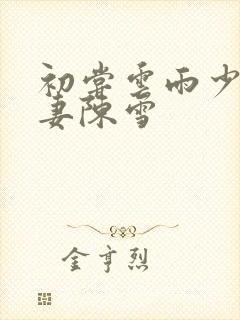 初尝雲雨少
妻陳雪
金亨烈